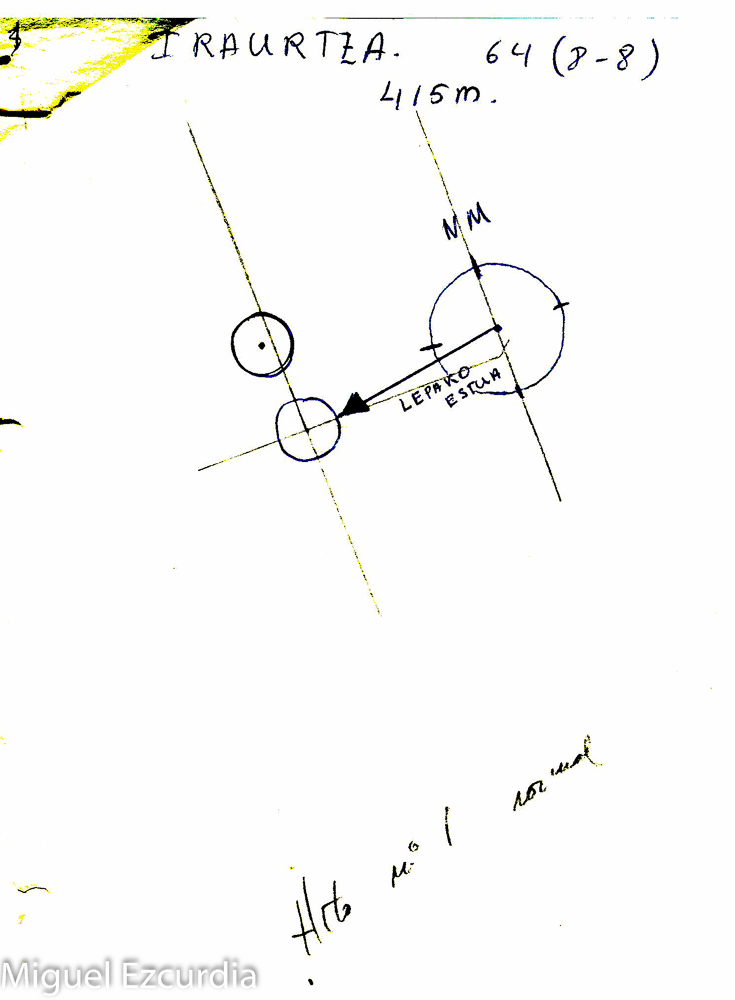 IRAURTZA. 64 (8-8)
415m.
NM
LEPAKO
ESTUA
nº 1 normal
Miguel Ezcurdia